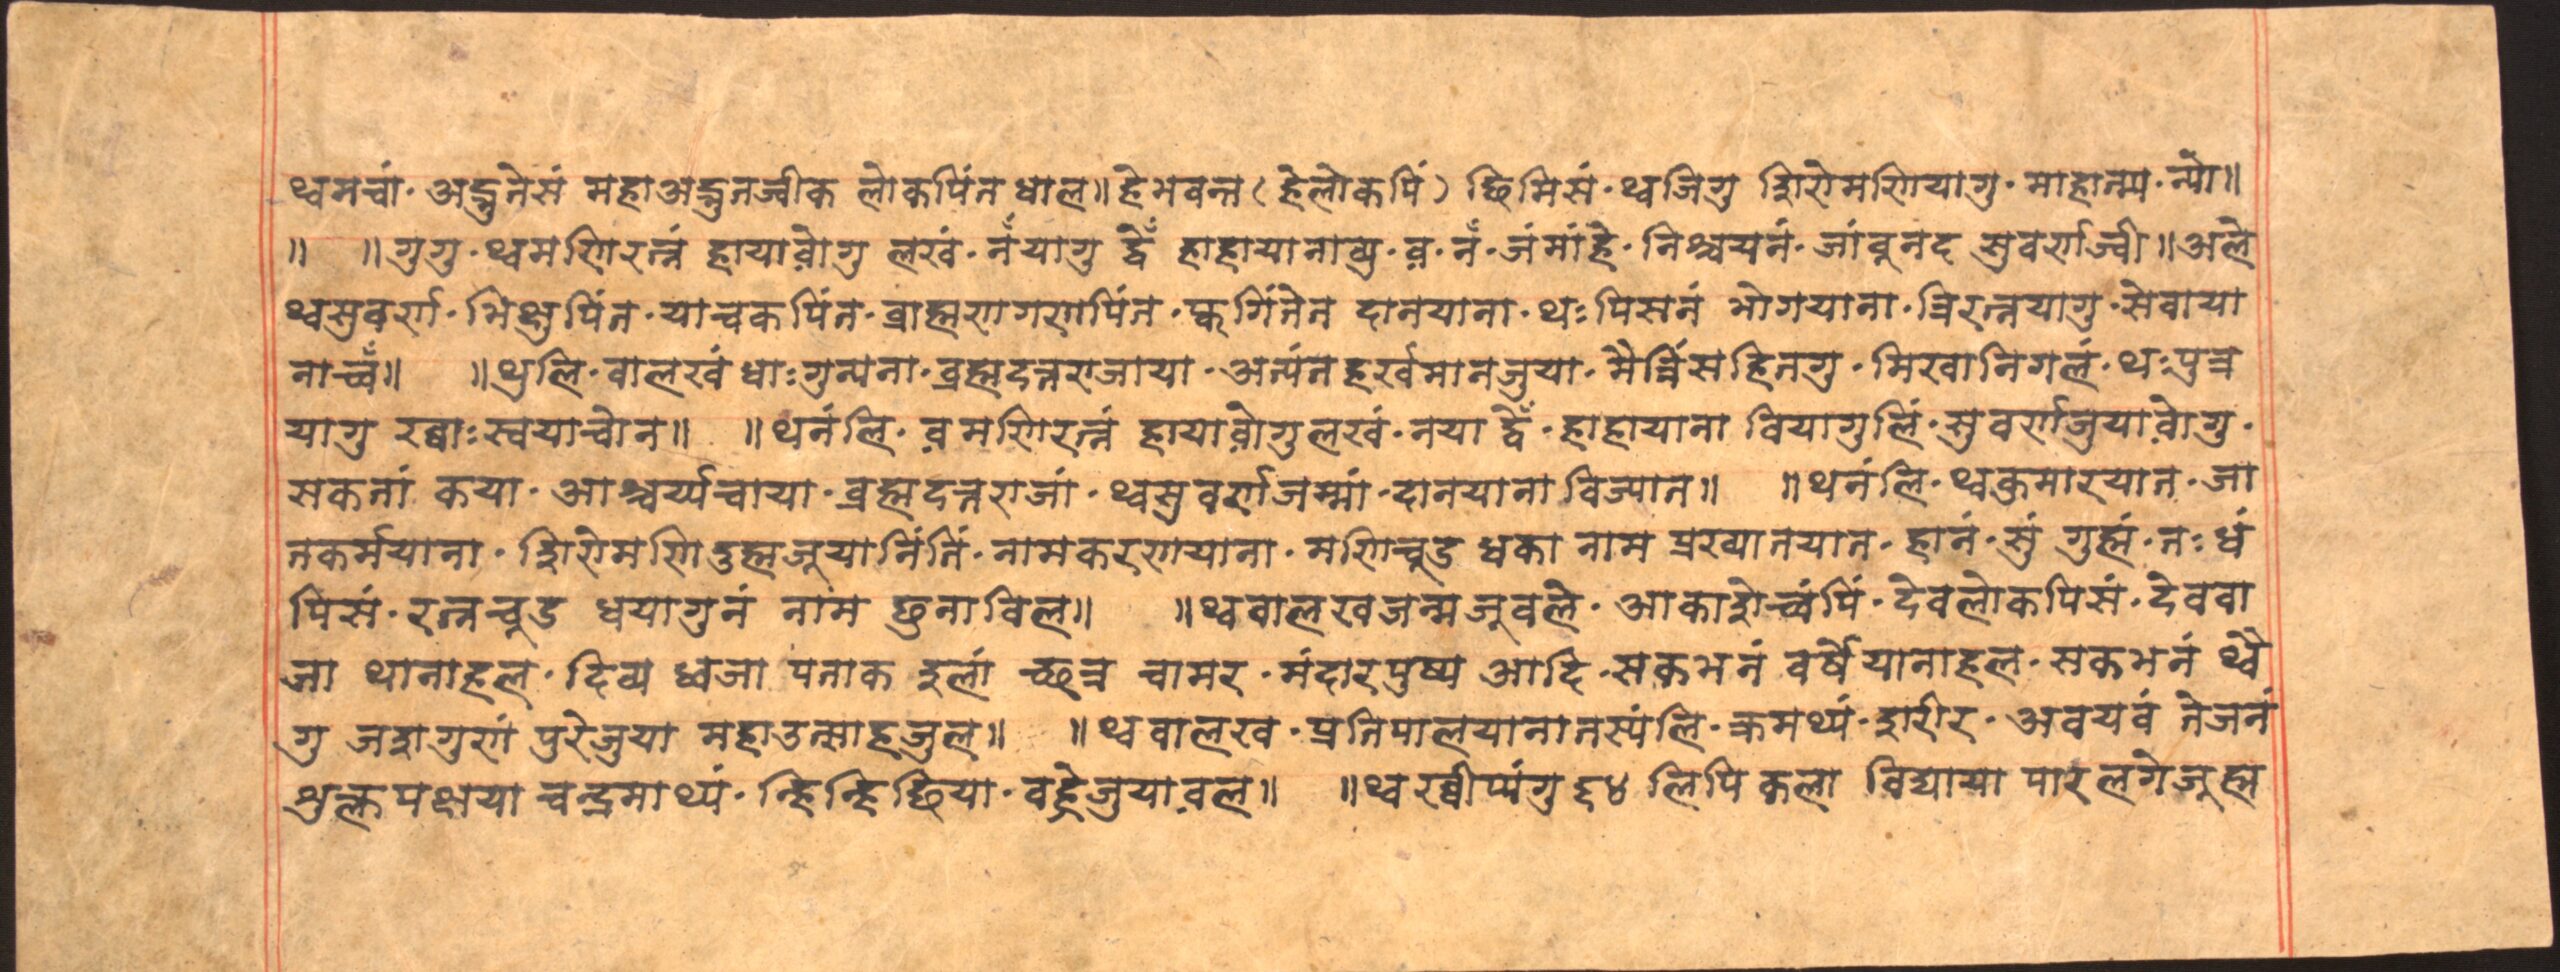 थ्वमचां॰ अद्भुतेसं महाअद्भुतज्वीक लोकपिंत धाल॥ हेभवन्त (हेलोकपिं) छिमिसं॰ थ्वजिगु शिरोमणियागु॰ माहात्म्य॰ न्यो॥
॥ ॥ गुगु॰ थ्वमणिरत्नं हायावोगु लखं॰ नँयागु द्वँ हाहायानाव्य॰ व॰ नँ॰ जंमांहे॰ निश्चयनं॰ जांवूनद सुवर्णज्वी॥ अले
थ्वसुवर्ण॰ भिक्षुपिंत॰ याचकपिंत॰ ब्राह्मणगणपिंत॰ फ्वगिंतेत दानयाना॰ थःपिसनं भोगयाना॰ त्रिरत्नयागु॰ सेवाया
नाच्वँ॥ ॥ थुलि॰ वालखं धाःगुन्यना॰ ब्रह्मदत्तराजाया॰ अत्यंतहर्खमानजुया॰ मैत्रिंसहितगु॰ मिखानिगलं॰ थःपुत्र
यागु ख्वाःस्वयाचोन॥ ॥ थनंलि॰ वमणिरत्नं हायावोगुलखं॰ नया द्वँ॰ हाहायाना वियागुलिं॰ सुवर्णजुयावोगु॰
सकतां कया॰ आश्चर्य्यचाया॰ ब्रह्मदत्तराजां॰ थ्वसुवर्णजम्मां॰ दानयाना विज्यात॥ ॥ थनंलि॰ थ्वकुमारयात॰ जा
तकर्मयाना॰ शिरोमणिदुह्मजूयानिंतिं॰ नामकरणयाना॰ मणिचूड धका नाम प्रख्यातयात॰ हानं॰ सुं गुह्मं॰ तःधं
पिसं॰ रत्नचूड धयागुनं नांम छुनाविल॥ ॥ थ्ववालखजन्मजूवले॰ आकाशेच्वंपिं॰ देवलोकपिसं॰ देववा
जा थानाहल॰ दिव्य ध्वजा पताक इलां छत्र चामर॰ मंदारपुष्प आदि॰ सकभनं वर्षेयानाहल॰ सकभनं थ्वे
गु जशगुणं पुरेजुया महाउत्साहजुल॥ ॥ थ्ववालख॰ प्रतिपालयानातस्यंलि॰ क्रमथ्यं॰ शरीर॰ अवयवं तेजनं
शुक्लपक्षया चन्द्रमाथ्यं॰ न्हिन्हिछिया॰ वह्रेजुयावल॥ ॥ थ्वख्वीप्यंगु ६४ लिपि कला विद्याया पारलगेजूह्म